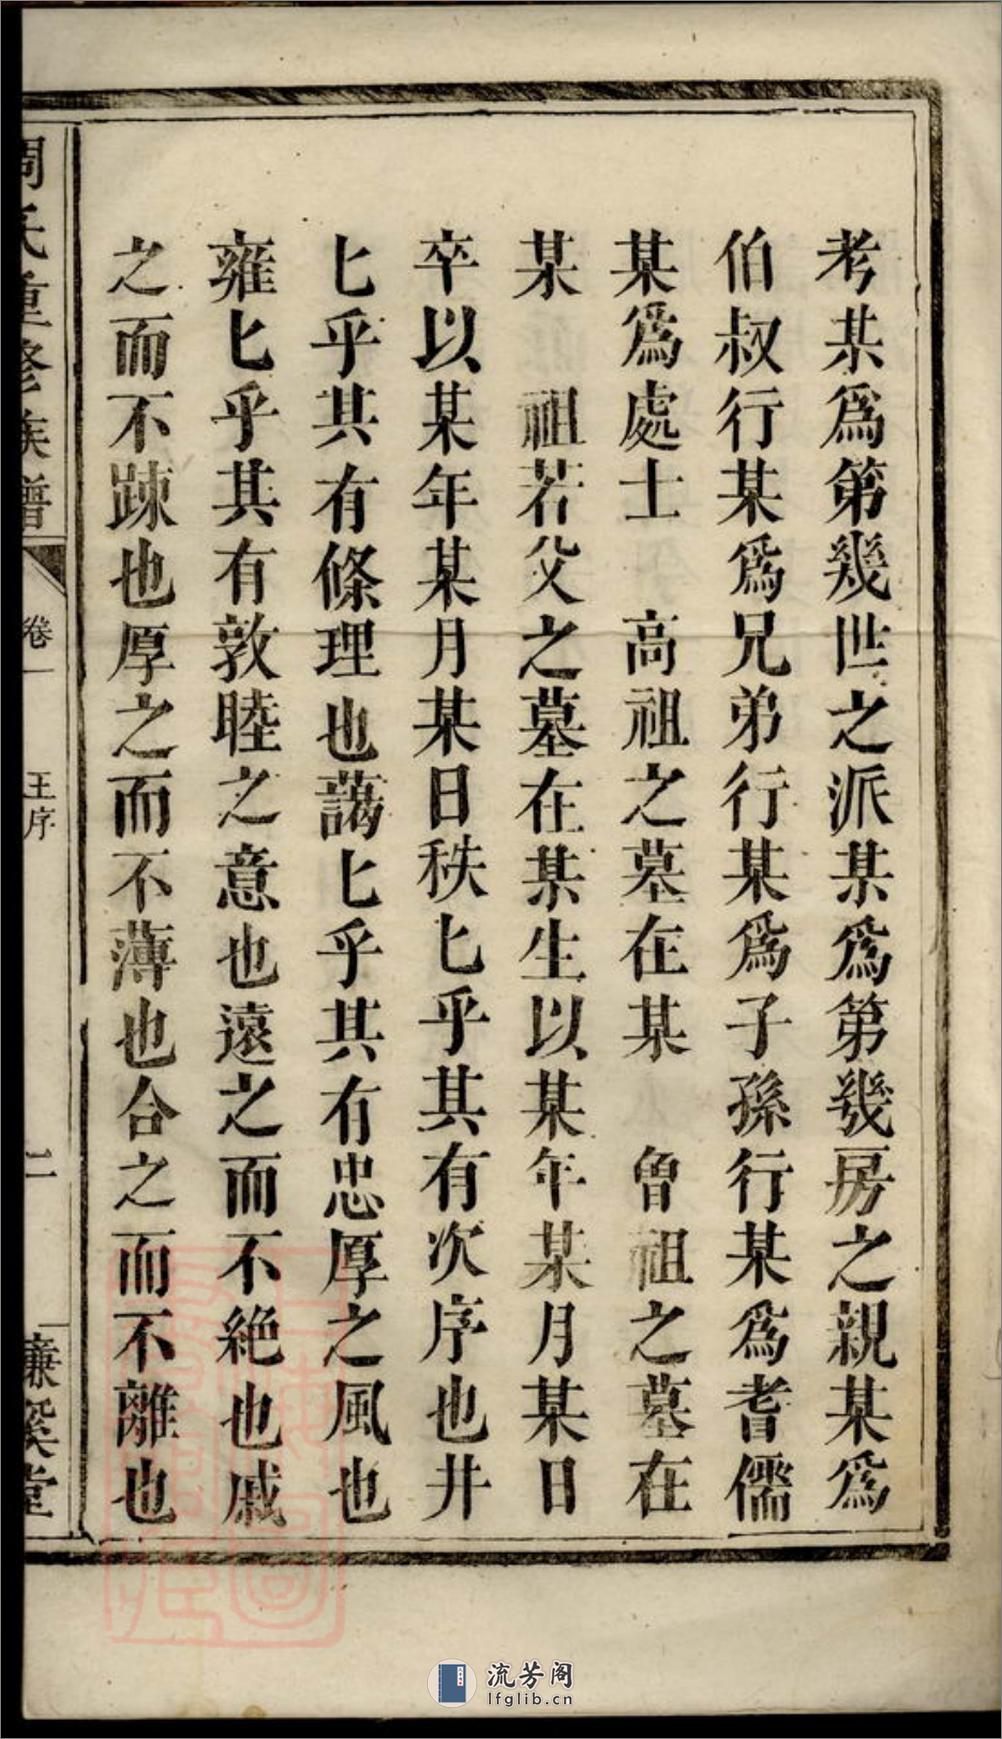 考某爲第幾世之派某爲第幾房之親某爲
伯叔行某爲兄弟行某爲子孫行某爲耆儒
某爲處士　高祖之墓在某　曾祖之墓在
某　祖若父之墓在某生以某年某月某日
卒以某年某月某日秩匕乎其有次序也井
匕乎其有條理也藹匕乎其有忠厚之風也
雍匕乎其有敦睦之意也遠之而不絶也戚
之而不踈也厚之而不薄也合之而不離也
周氏重修族譜
卷一
王序
二
濂溪堂
流芳阁
lfglib.cn